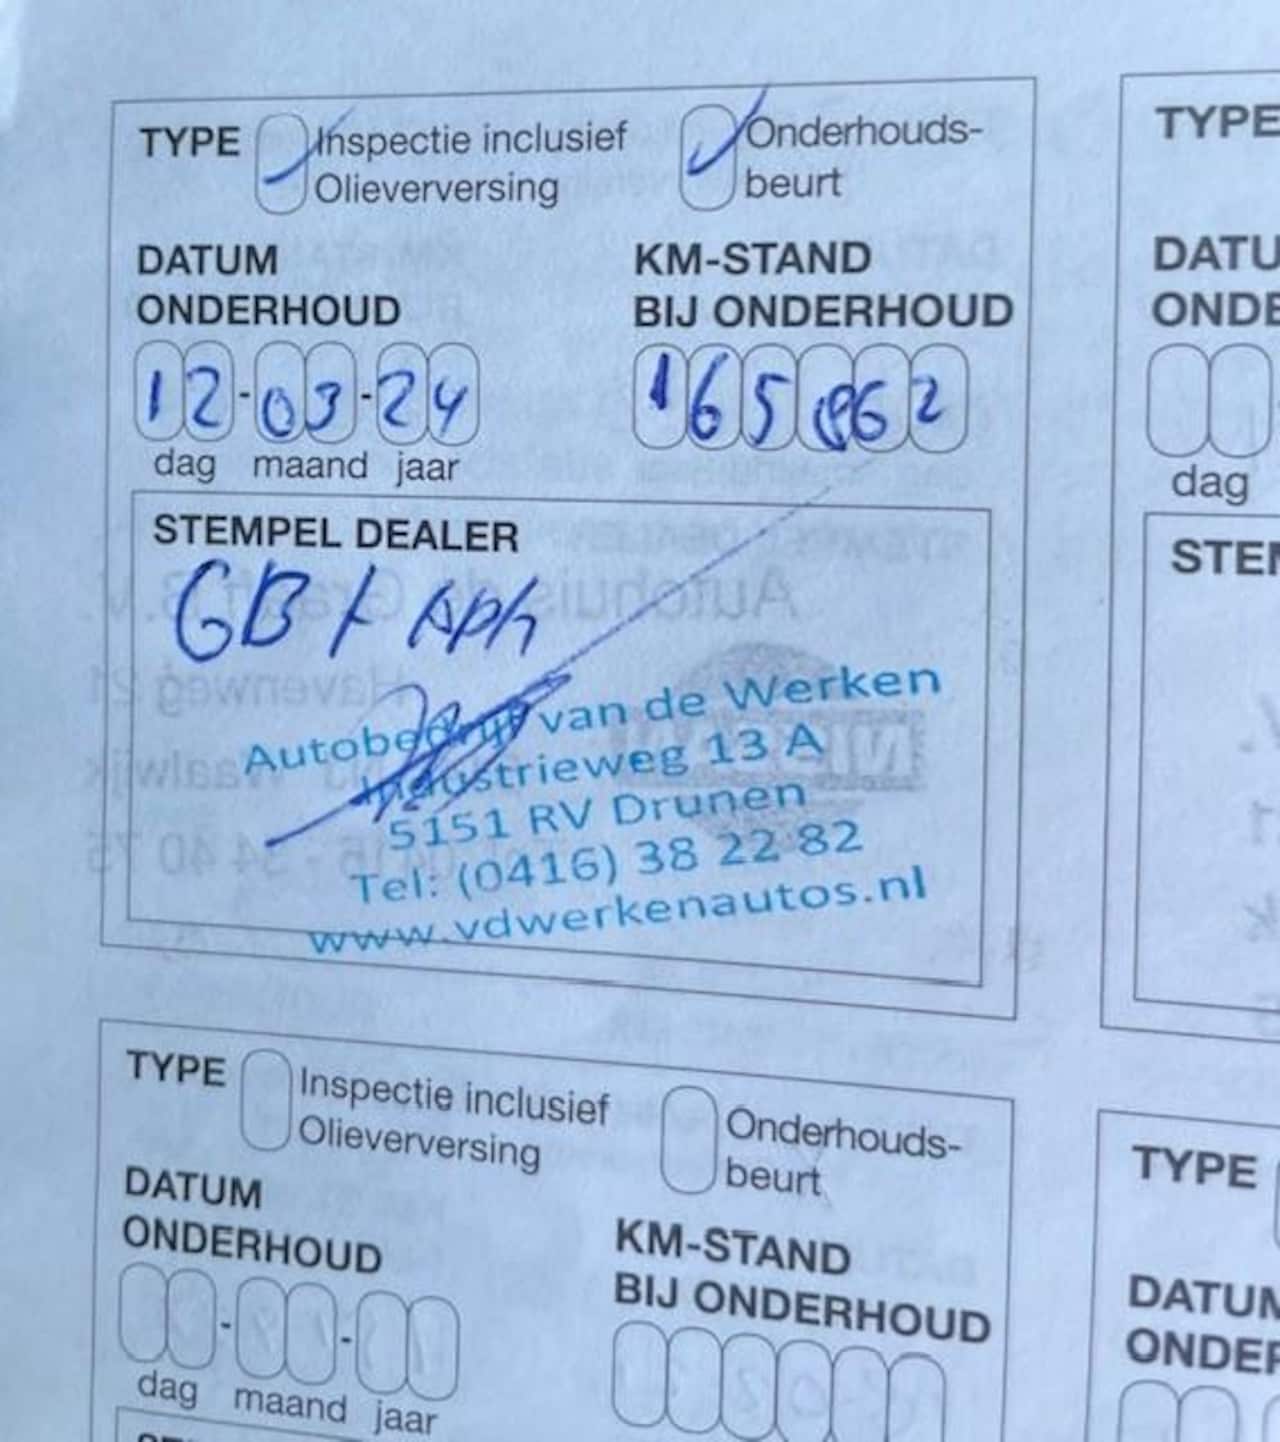 TYPE Inspectie inclusief Olieverversing Onderhouds-beurt
DATUM ONDERHOUD
KM-STAND BIJ ONDERHOUD
12-03-24
165862
dag maand jaar
STEMPEL DEALER
GB + Aph
Autobedrijf van de Werken
Industrieweg 13 A
5151 RV Drunen
Tel: (0416) 38 22 82
www.vdwerkenautos.nl
TYPE Inspectie inclusief Olieverversing Onderhouds-beurt
DATUM ONDERHOUD
KM-STAND BIJ ONDERHOUD
dag maand jaar
TYPE
DATU
ONDE
dag
STEM
TYPE
DATUM
ONDER